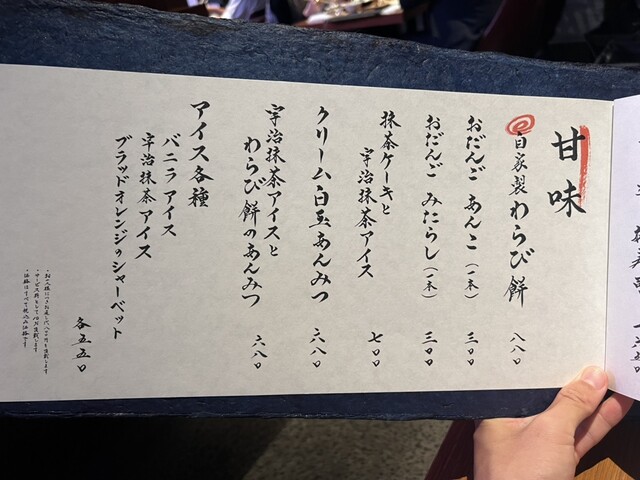 甘味
自家製わらび餅 八八〇
おだんご あんこ(一本) 三〇〇
おだんご みたらし(一本) 三〇〇
抹茶ケーキと
宇治抹茶アイス 七〇〇
クリーム白玉あんみつ 六八〇
宇治抹茶アイスと
わらび餅のあんみつ 六八〇
アイス各種
バニラアイス
宇治抹茶アイス
ブラッドオレンジのシャーベット
各五五〇